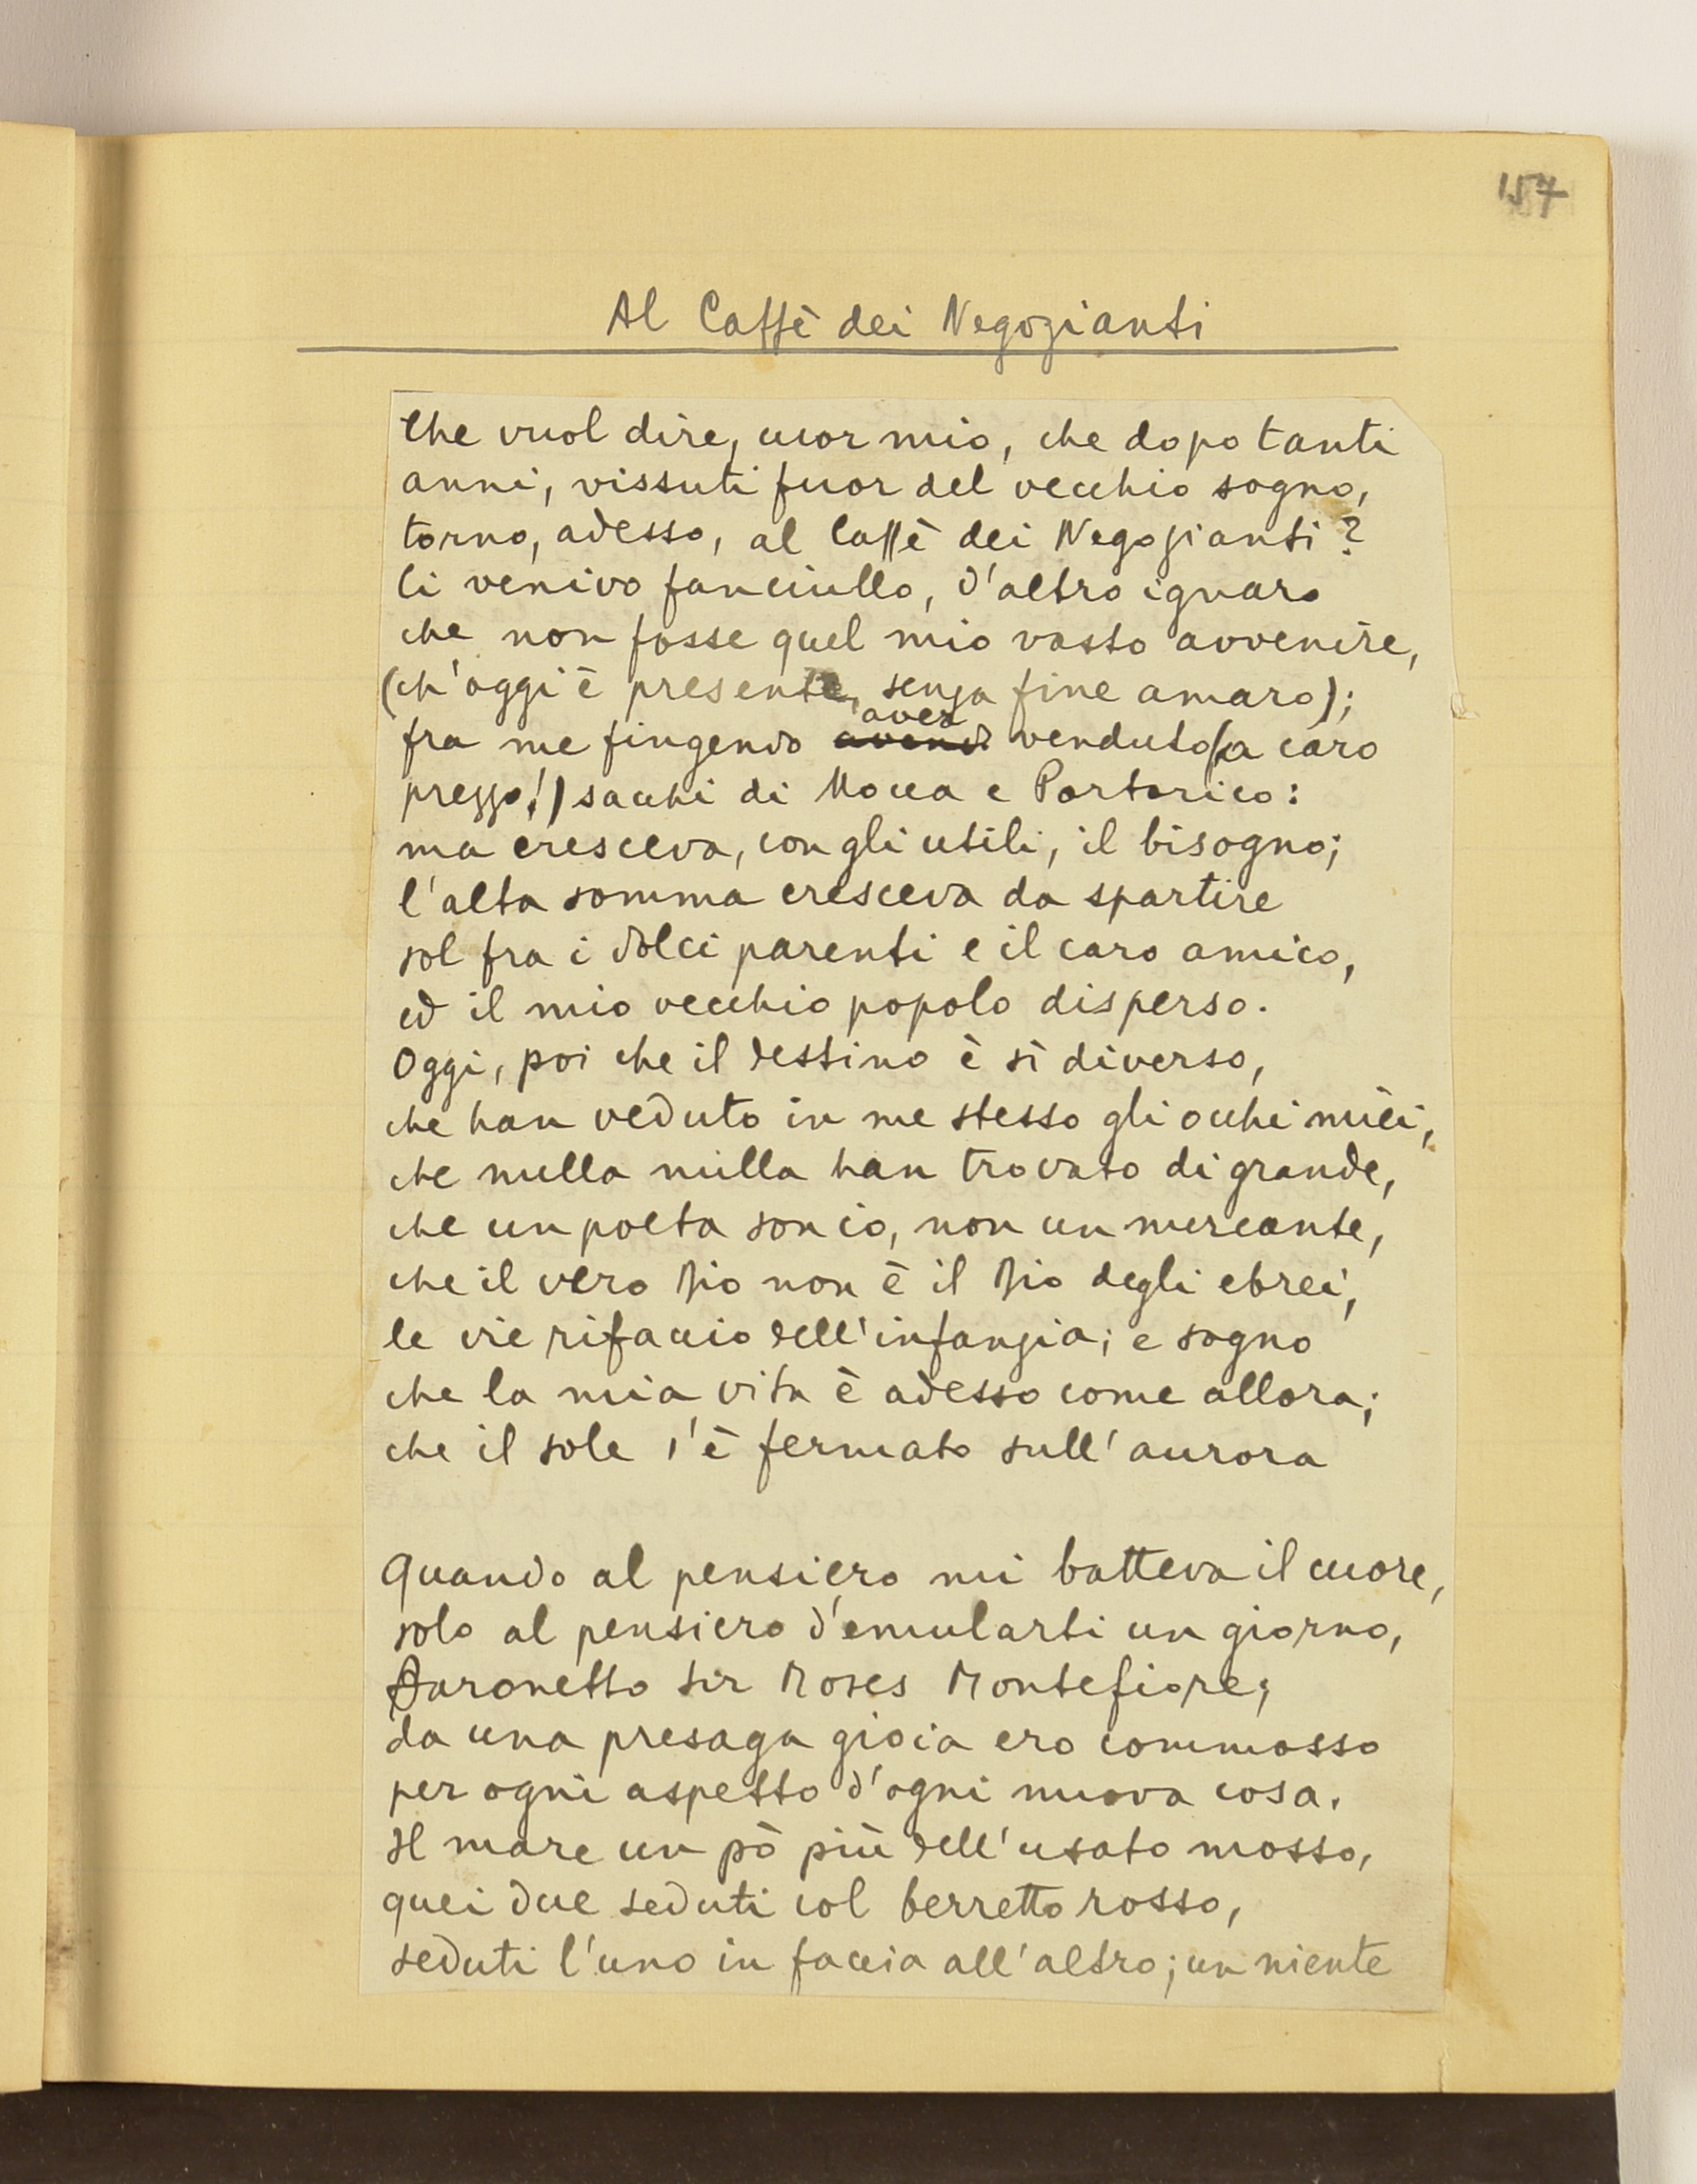 157
Al Caffè dei Negozianti
Che vuol dire, cuor mio, che dopo tanti
anni, vissuti fuor del vecchio sogno,
torno, adesso, al Caffè dei Negozianti?
Ci venivo fanciullo, d'altro ignaro
che non fosse quel mio vasto avvenire,
(ch'oggi è presente, senza fine amaro);
aver
fra me fingendo avendo venduto (a caro
prezzo!) sacchi di Mocca e Portorico:
ma cresceva, con gli utili, il bisogno;
l'alta somma cresceva da spartire
sol fra i dolci parenti e il caro amico,
ed il mio vecchio popolo disperso.
Oggi, poi che il destino è sì diverso,
che han veduto in me stesso gli occhi mièi,
che nulla nulla han trovato di grande,
che un poeta son io, non un mercante,
che il vero Dio non è il Dio degli ebrei,
le vie rifaccio dell'infanzia; e sogno
che la mia vita è adesso come allora;
che il sole s'è fermato sull'aurora
Quando al pensiero mi batteva il cuore,
solo al pensiero d'emularti un giorno,
Baronetto Sir Moses Montefiore;
da una presaga gioia ero commosso
per ogni aspetto d'ogni nuova cosa.
Il mare un pò più dell'usato mosso,
quei due seduti col berretto rosso,
seduti l'uno in faccia all'altro; un niente